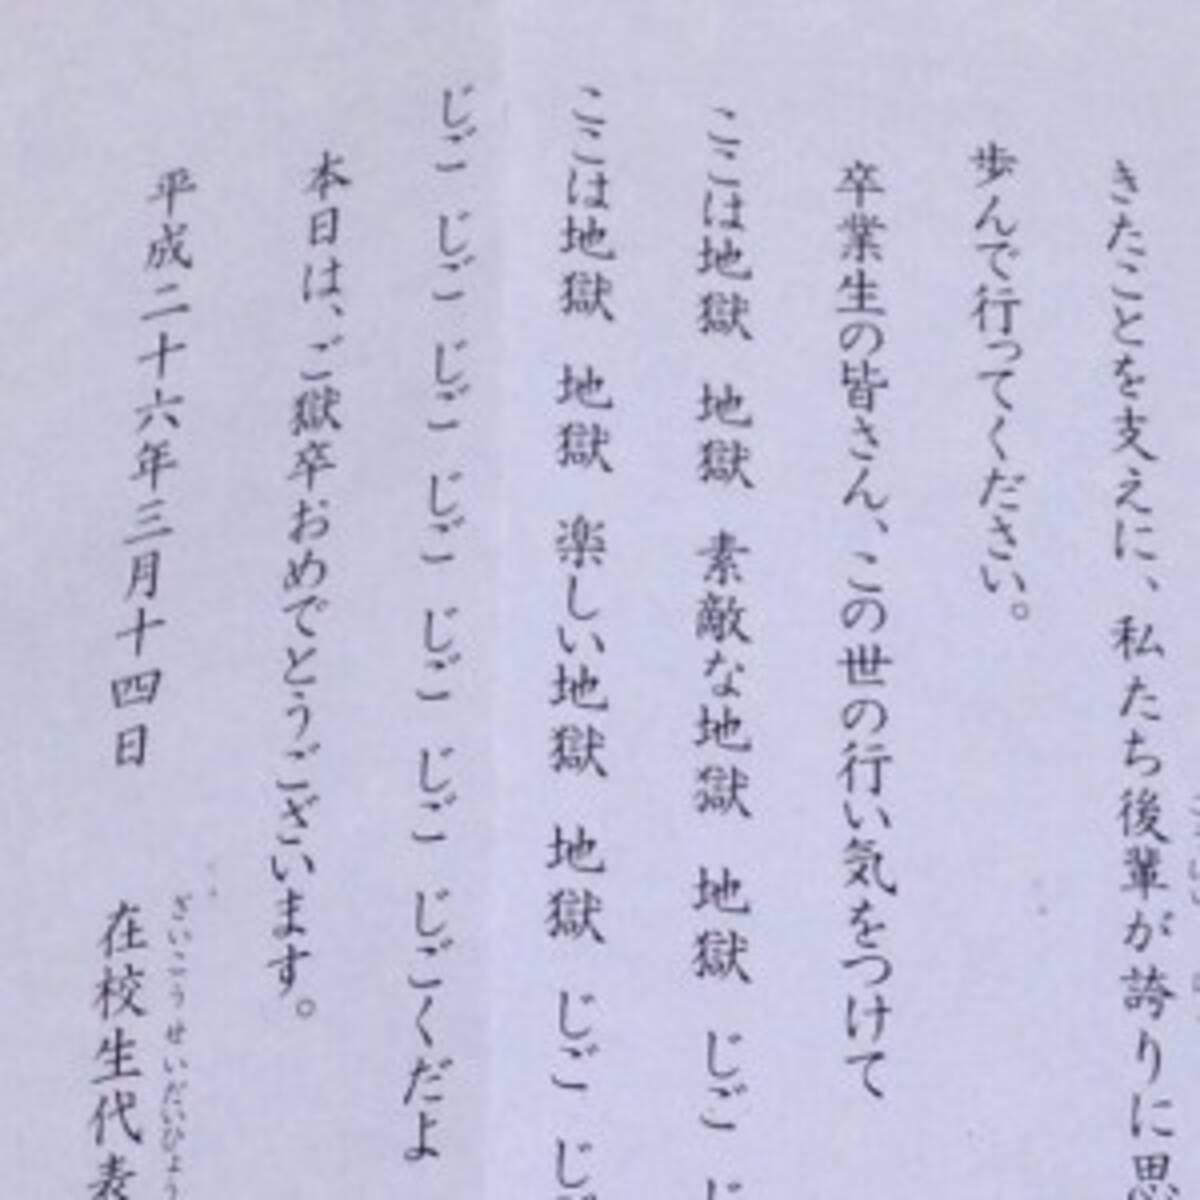 きたことを支えに、私たち後輩が誇りに思
歩んで行ってください。
卒業生の皆さん、この世の行い気をつけて
ここは地獄 地獄 素敵な地獄 地獄 じご じ
ここは地獄 地獄 楽しい地獄 地獄 じご じご
じご じご じご じご じご じご じごくだよ
本日は、ご獄卒おめでとうございます。
平成二十六年三月十四日
ざいこうせいだいひょう
在校生代表